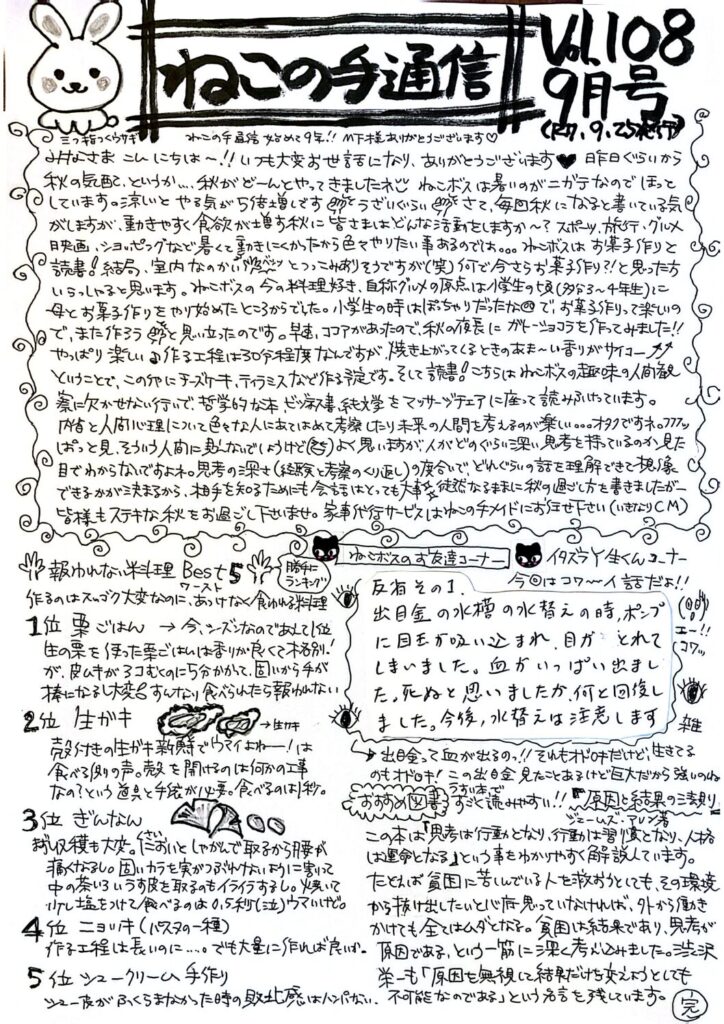 ねこの手通信
Vol.108
9月号
(R7.9.25発行)
三つ指つくウサギ
ねこの手通信始めて9年!! M下様ありがとうございます♡
みなさま こんにちは〜!! いつも大変お世話になり、ありがとうございます♥ 昨日ぐらいから
秋の気配、というか…秋がどーんとやってきましたね ねこボスは暑いのがニガテなのでほっと
しています。涼しいと やる気が5倍増しです うざいぐらい さて、毎回秋になると書いている気
がしますが、動きやすく食欲が増す秋に皆さまはどんな活動をしますか〜? スポーツ、旅行、グルメ
映画、ショッピングなど暑くて動きにくかったから色々やりたい事あるのでは。。。ねこボスはお菓子作りと
読書! 結局、室内なのかい とつっこみありそうですが(笑)何で今さらお菓子作り?!と思った方も
いらっしゃると思います。ねこボスの今の料理好き、自称グルメの原点は小学生の頃(多分3〜4年生)に
母とお菓子作りをやり始めたところからでした。小学生の時はぽっちゃりだったな で、お菓子作って楽しいの
で、また作ろう と思い立ったのです。早速、ココアがあったので、秋の夜長に ガトーショコラを作ってみました!!
やっぱり楽しい♪ 作る工程は30分程度なんですが、焼き上がってくるときのあま〜い香りがサイコー
ということで、この後にチーズケーキ、ティラミスなど作る予定です。そして読書! こちらはねこボスの趣味の人間観
察に欠かせない行いで、哲学的な本、ビジネス書、純文学をマッサージチェアに座って読みふけっています。
内省と人間心理について色々な人にあてはめて考察したり未来の人間を考えるのが楽しい。。。オタクですネ。フフフッ
ぱっと見、そういう人間に見えないでしょうけど よく思いますが、人がどのぐらい深い思考を持っているのか見た
目でわからないですよネ。思考の深さ(経験と考察のくり返し)の度合いで、どれぐらいの話を理解できて想像
できるかが決まるから、相手を知るためにも会話はとっても大事 徒然なるままに秋の過ごし方を書きましたが…
皆様もステキな秋をお過ごし下さいませ。家事代行サービスはねこの手メイドにお任せ下さい(いきなりCM)
報われない料理 Best5
ワースト
勝手に
ランキング
作るのはスッゴク大変なのに、あっけなく食われる料理
1位 栗ごはん → 今、シーズンなのであえて1位
生の栗を使った栗ごはんは香りが良くて格別!
が、皮ムキが3コむくのに5分かかって、固いから手が
棒になるし大変 すんなり食べられたら報われない
2位 生ガキ
→生ガキ
殻付きの生ガキ新鮮でウマイよねー! は
食べる側の声。殻を開けるのは何かの工事
なの?という道具と手袋が必要。食べるのは1秒。
3位 ぎんなん
まず収穫も大変。におい(くさい)としゃがんで取るから腰が
痛くなるし。固いカラを実がつぶれないように割って
中の茶いろいうす皮を取るのもイライラするし。焼いて
少し塩をつけて食べるのは0.5秒(泣)ウマいけど。
4位 ニョッキ (パスタの一種)
作る工程は長いのに…。でも大量に作れば良いか。
5位 シュークリーム 手作り
シュー皮がふくらまなかった時の敗北感はハンパない。
ねこボスのお友達コーナー
イタズラ丫生くんコーナー
今回はコワ〜イ話だよ!!
反省その1.
出目金の水槽の水替えの時、ポンプ
に目玉が吸い込まれ、目が とれて
しまいました。血がいっぱい出まし
た。死ぬと思いましたが、何と回復し
ました。今後、水替えは注意します
エー!!
コワッ
雑
→出目金って血が出るのっ!! それもオドロキだけど、生きてる
のもオドロキ! この出目金 見たことあるけど巨大だから強いのね
おすすめ図書
うすい本で
すごく読みやすい!!
『原因と結果の法則』
ジェームズ・アレン著
この本は「思考は行動となり、行動は習慣となり、人格
は運命となる」という事をわかりやすく解説しています。
たとえば貧困に苦しんでいる人を救おうとしても、その環境
から抜け出したいと心底思っていなければ、外から働き
かけても全てはムダとなる。貧困は結果であり、思考が
原因である、という一節に深く考え込みました。渋沢
栄一も「原因を無視して結果だけを変えようとしても
不可能なのである」という名言を残しています。
完